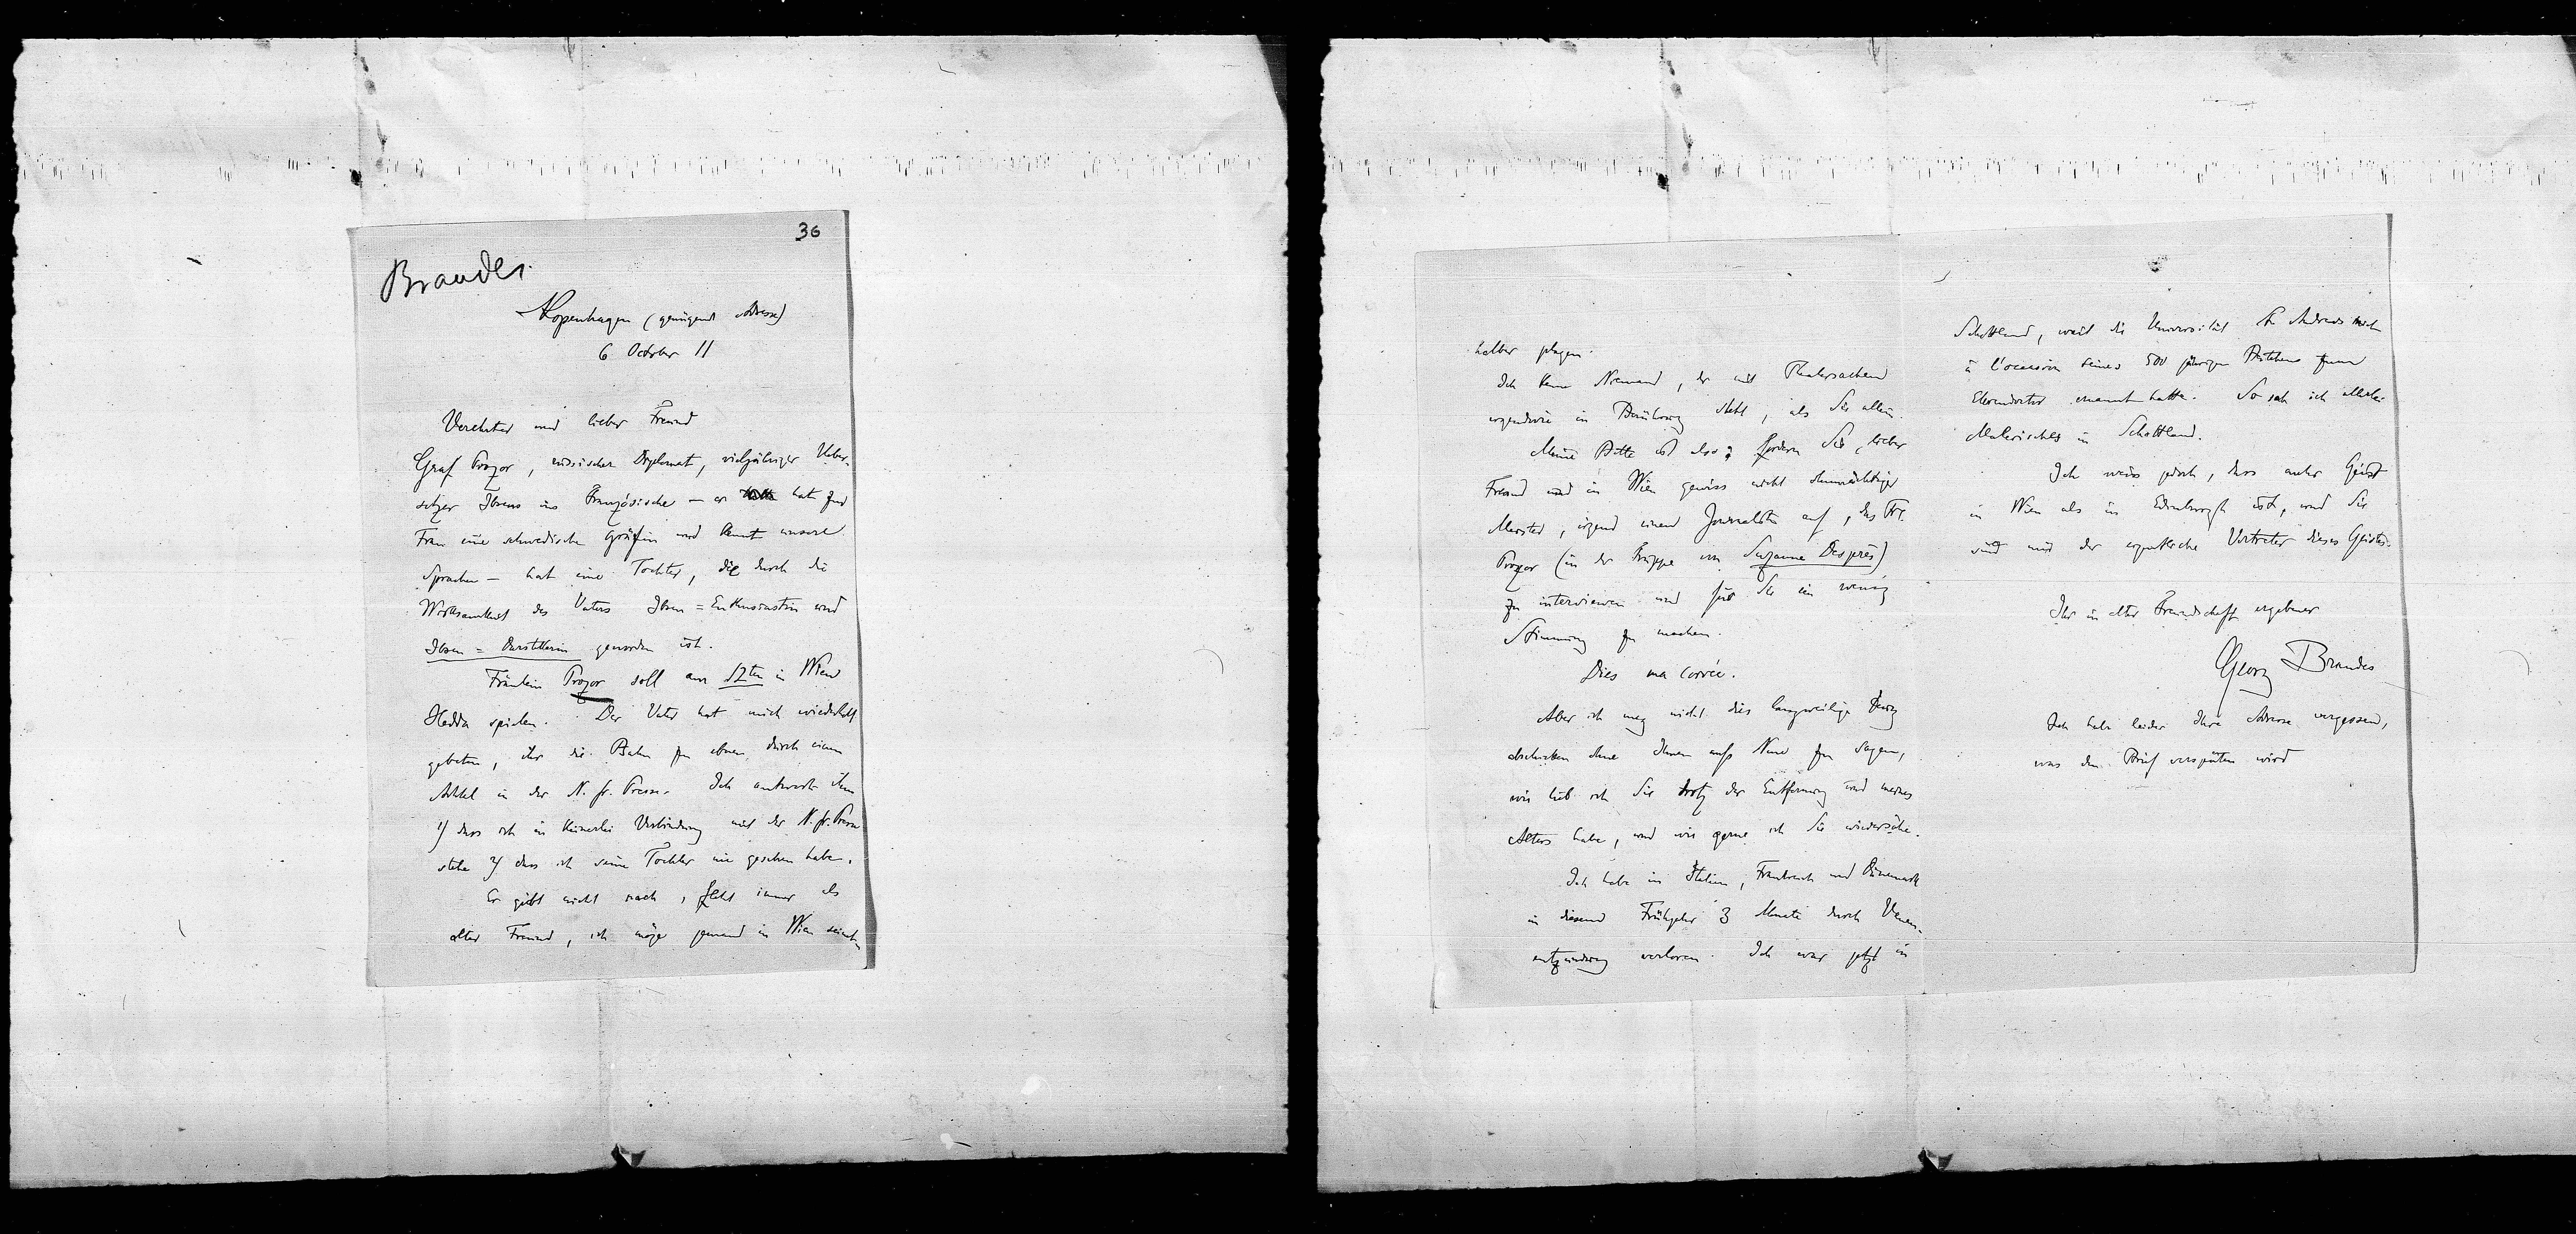 36
Brandes.
Kopenhagen (genügende Adresse)
6 October 11
Verehrter und lieber Freund
Graf Prozor, russischer Diplomat, vieljähriger Ueber-
setzer Ibsens ins Französische – er hat zur
Frau eine schwedische Gräfin und kennt unsere
Sprachen – hat eine Tochter, die durch die
Wirksamkeit des Vaters Ibsen=Enthusiastin und
Ibsen=Darstellerin geworden ist.
Fräulein Prozor soll am 12ten in Wien
Hedda spielen. Der Vater hat mich wiederholt
gebeten, ihr die Bahn zu ebnen durch einen
Artikel in der N. fr. Presse. Ich antwortete ihm
1) dass ich in keinerlei Verbindung mit der N. fr. Presse
stehe 2) dass ich seine Tochter nie gesehen habe.
Er gibt nicht nach, fleht immer als
alter Freund, ich möge jemand in Wien seinet-
halber plagen.
Ich kenne Niemand, der mit Theatersachen
irgendwie in Berührung steht, als Sie allein.
Meine Bitte ist also: fordern Sie, lieber
Freund und in Wien gewiss nicht ohnmächtiger
Meister, irgend einen Journalisten auf, das Frl.
Prozor (in der Truppe von Suzanne Desprès)
zu interviewen und für sie ein wenig
Stimmung zu machen.
Dies ma corvée.
Aber ich mag nicht dies langweilige Zeug
abschicken ohne Ihnen aufs Neue zu sagen,
wie lieb ich Sie trotz der Entfernung und meines
Alters habe, und wie gerne ich Sie wiedersähe.
Ich habe in Italien, Frankreich und Dänemark
in diesem Frühjahr 3 Monate durch Venen-
entzündung verloren. Ich war jetzt in
Schottland, weil die Universität St Andrews mich
à l'occasion seines 500 jährigen Bestehens zum
Ehrendoctor ernannt hatte. So sah ich allerlei
Malerisches in Schottland.
Ich weiss jedoch, dass mehr Geist
in Wien als in Edinburgh ist, und Sie
sind mir der eigentliche Vertreter dieses Geistes.
Ihr in alter Freundschaft ergebener
Georg Brandes
Ich habe leider Ihre Adresse vergessen,
was den Brief verspäten wird